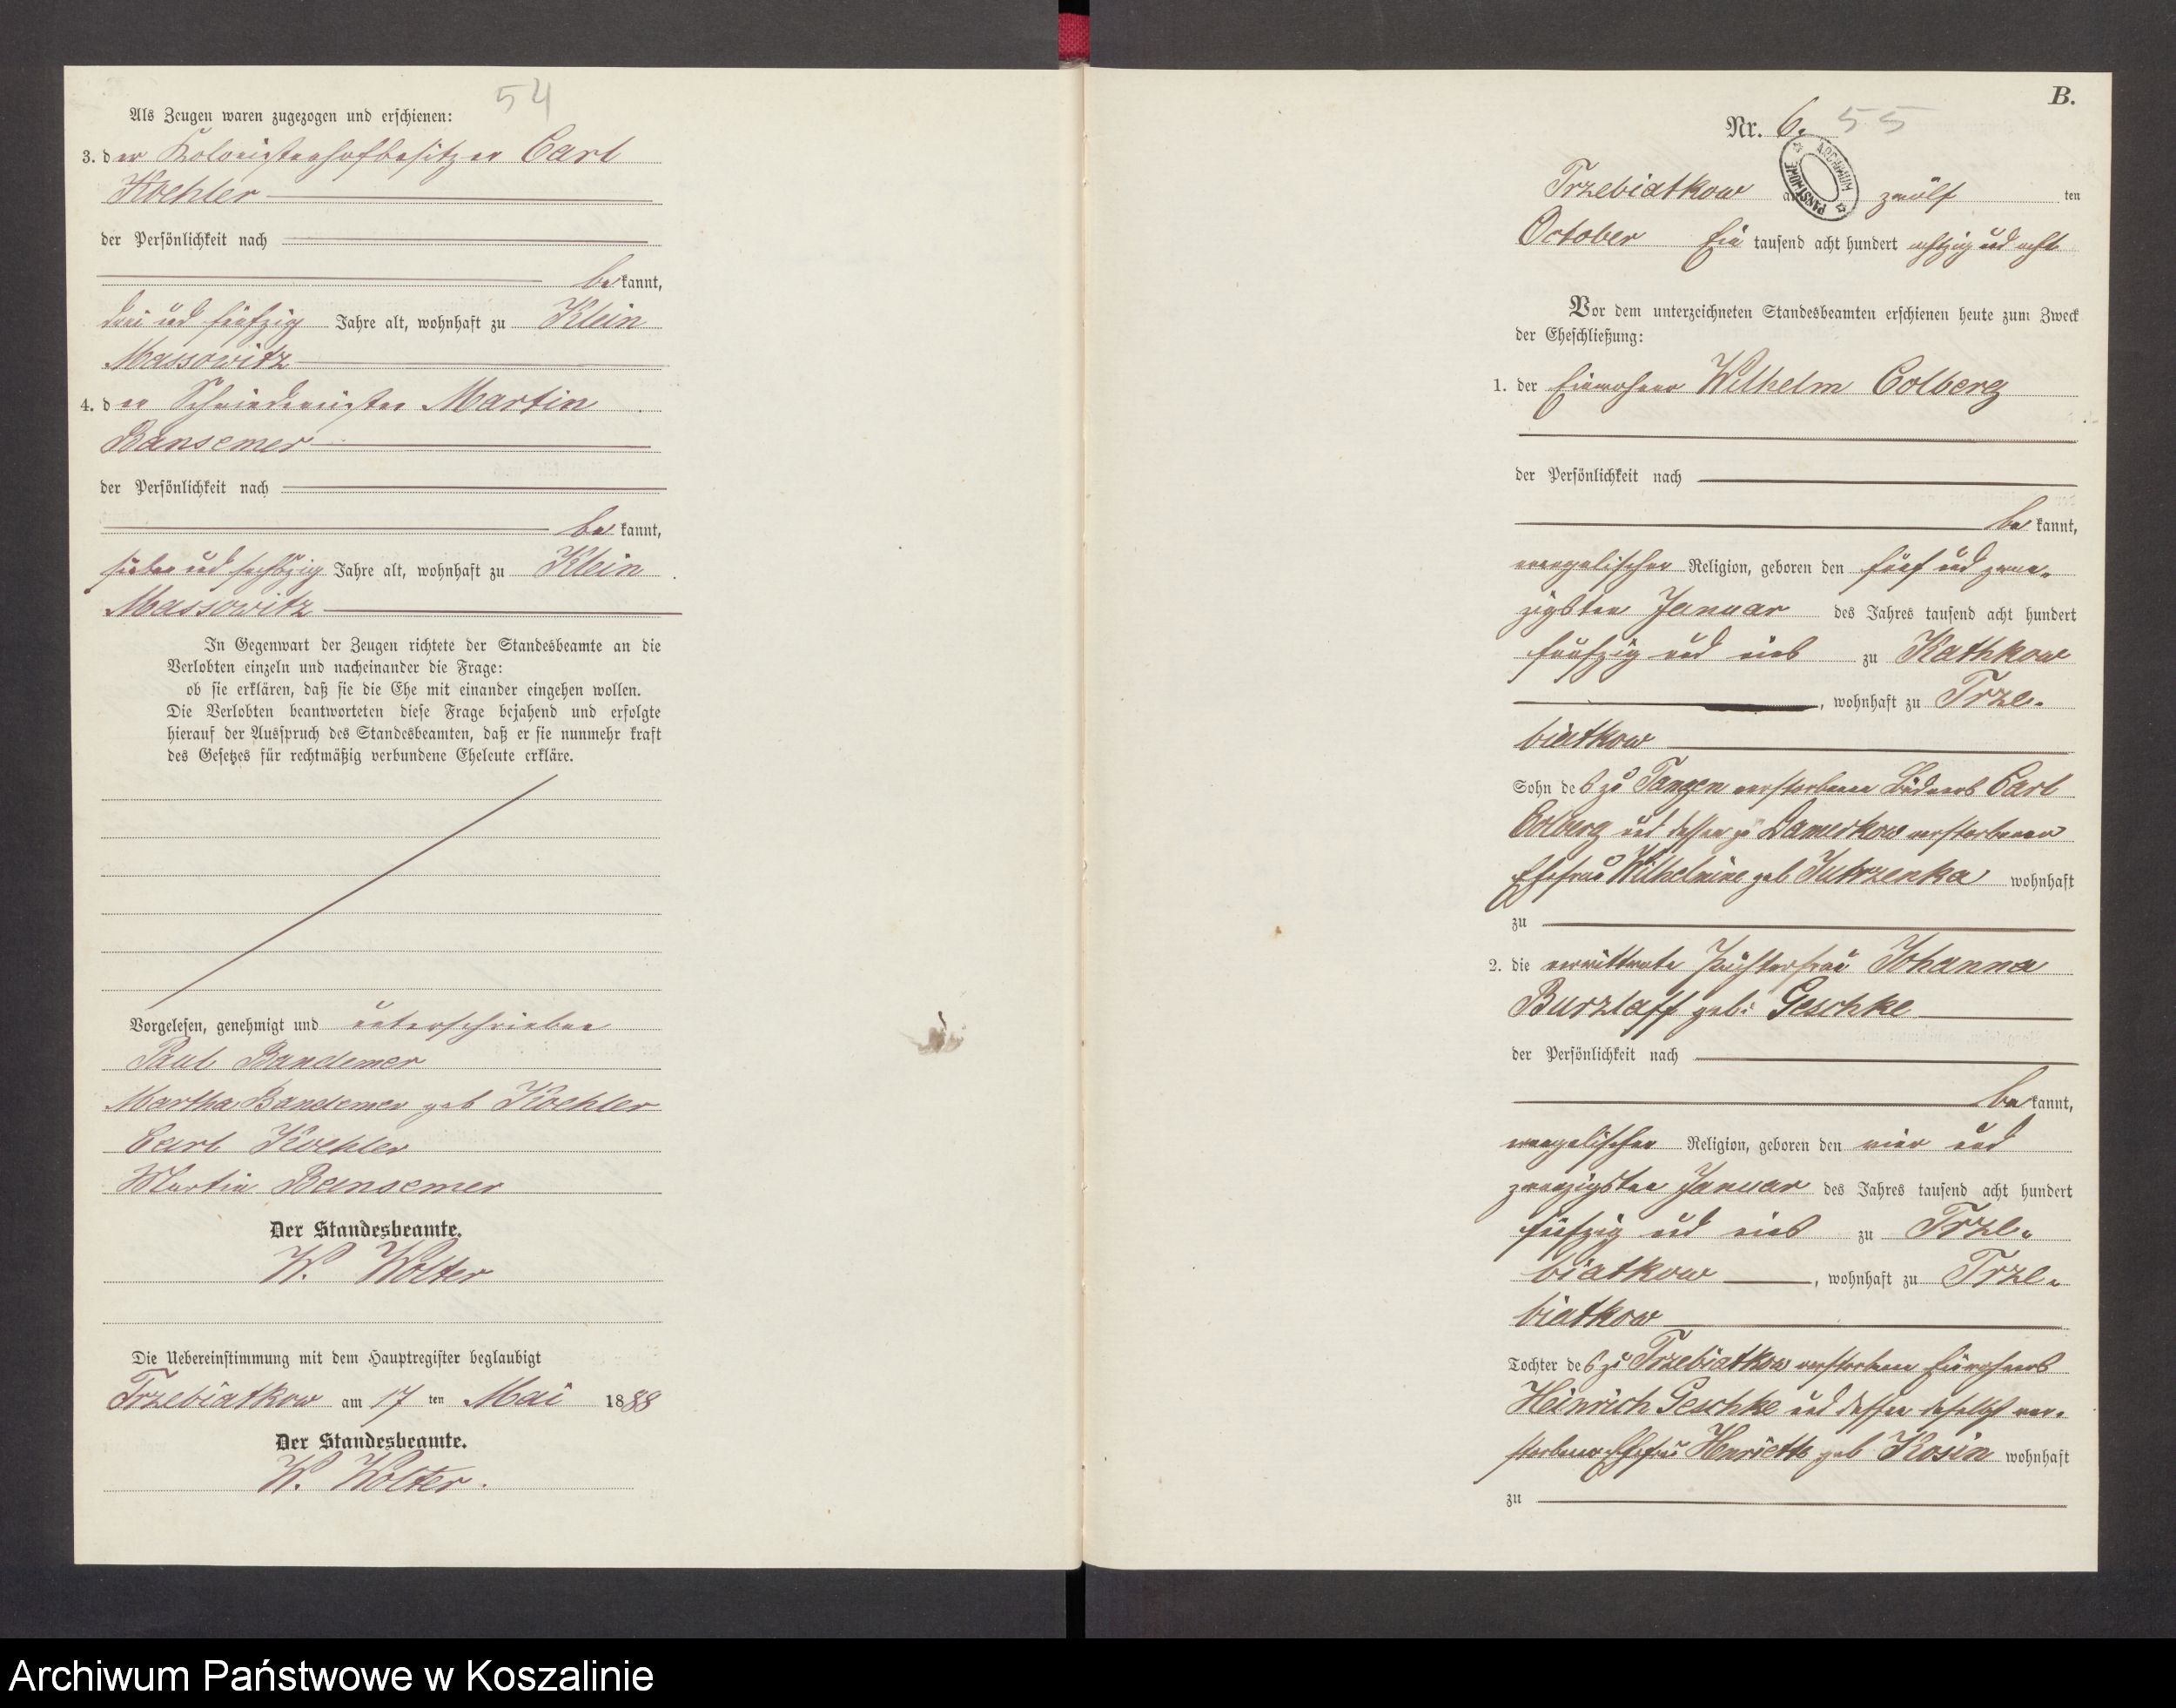 54
Als Zeugen waren zugezogen und erschienen:
3. der Kolonistenhofbesitzer Carl
Koehler
der Persönlichkeit nach
bekannt,
drei und fünfzig Jahre alt, wohnhaft zu Klein
Massowitz
4. der Schmiedemeister Martin
Bansemer
der Persönlichkeit nach
bekannt,
sieben und sechszig Jahre alt, wohnhaft zu Klein
Massowitz
In Gegenwart der Zeugen richtete der Standesbeamte an die
Verlobten einzeln und nacheinander die Frage:
ob sie erklären, daß sie die Ehe mit einander eingehen wollen.
Die Verlobten beantworteten diese Frage bejahend und erfolgte
hierauf der Ausspruch des Standesbeamten, daß er sie nunmehr kraft
des Gesetzes für rechtmäßig verbundene Eheleute erkläre.
Vorgelesen, genehmigt und unterschrieben
Paul Bandemer
Martha Bandemer geb Koehler
Carl Koehler
Martin Bansemer
Der Standesbeamte.
W. Wolter
Die Uebereinstimmung mit dem Hauptregister beglaubigt
Trzebiatkow am 17 ten Mai 1888
Der Standesbeamte.
W. Wolter.
B.
Nr. 6. 55
ARCHIWUM PAŃSTWOWE
Trzebiatkow am zwölf ten
October Ein tausend acht hundert achtzig und acht
Vor dem unterzeichneten Standesbeamten erschienen heute zum Zweck
der Eheschließung:
1. der Einwohner Wilhelm Colberg
der Persönlichkeit nach
bekannt,
evangelischer Religion, geboren den fünf und zwan-
zigsten Januar des Jahres tausend acht hundert
fünfzig und eins zu Kathkow
, wohnhaft zu Trze-
biatkow
Sohn des zu Tangen verstorbenen Büdners Carl
Colberg und dessen zu Damerkow verstorbenen
Ehefrau Wilhelmine geb Jutrzenka wohnhaft
zu
2. die verwittwete Pächterfrau Johanna
Burzlaff geb: Geschke
der Persönlichkeit nach
bekannt,
evangelischer Religion, geboren den vier und
zwanzigsten Januar des Jahres tausend acht hundert
fünfzig und eins zu Trze-
biatkow, wohnhaft zu Trze-
biatkow
Tochter des zu Trzebiatkow verstorbenen Einwohners
Heinrich Geschke und dessen daselbst ver-
storbenen Ehefrau Henriette geb Kosin wohnhaft
zu
Archiwum Państwowe w Koszalinie